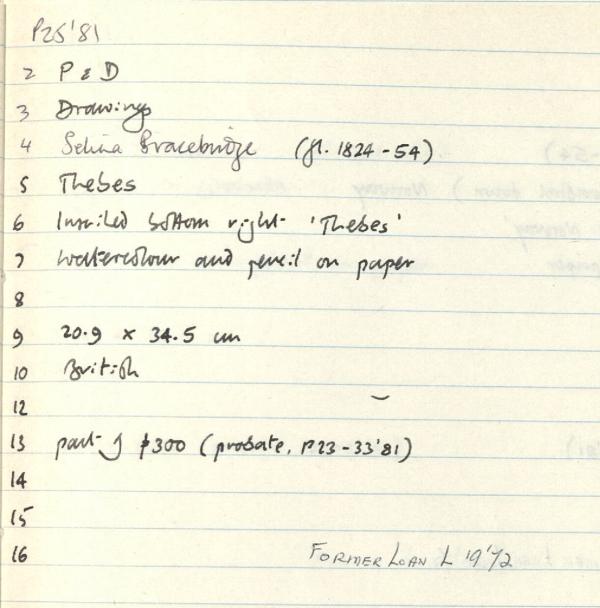 P25'81
2 P & D
3 Drawings
4 Selina Bracebridge (fl. 1824-54)
5 Thebes
6 Inscribed bottom right 'Thebes'
7 Watercolour and pencil on paper
8
9 20.9 x 34.5 cm
10 British
12
13 part of £300 (probate, P23-33'81)
14
15
16 FORMER LOAN L 19'72